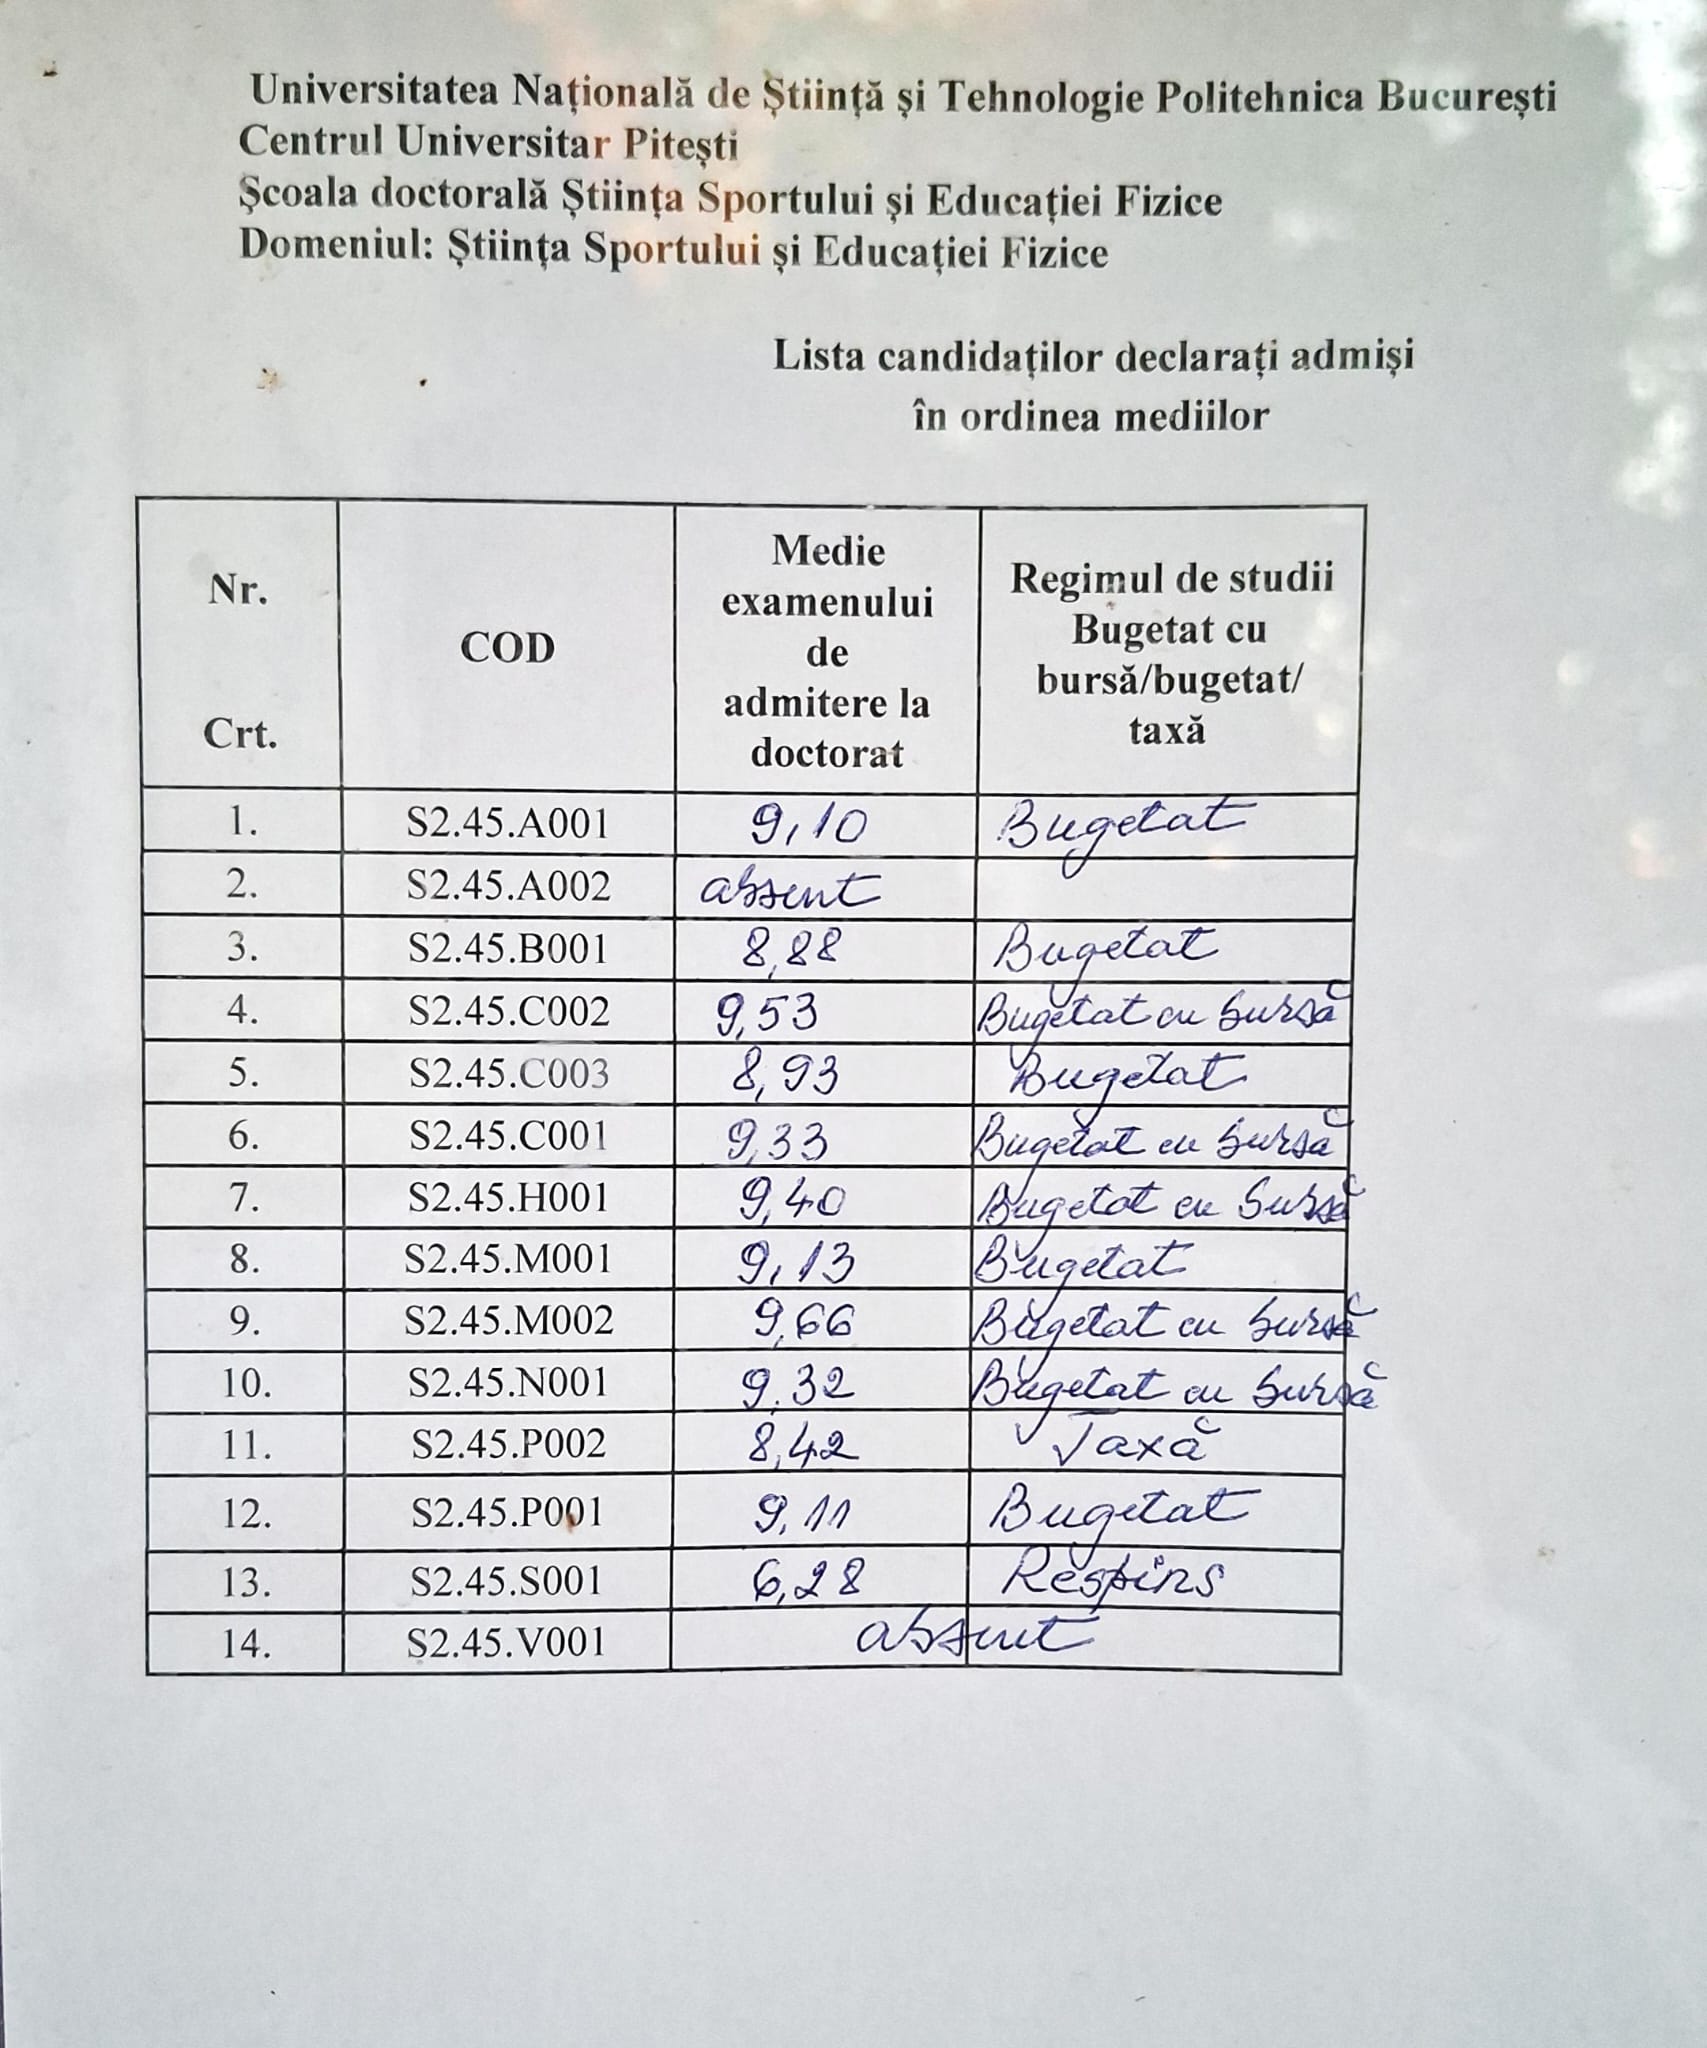 Universitatea Națională de Știință și Tehnologie Politehnica București
Centrul Universitar Pitești
Școala doctorală Știința Sportului și Educației Fizice
Domeniul: Știința Sportului și Educației Fizice
Lista candidaților declarați admiși
în ordinea mediilor
Nr. Crt. COD Medie examenului de admitere la doctorat Regimul de studii Bugetat cu bursă/bugetat/ taxă
1. S2.45.A001 9,10 Bugetat
2. S2.45.A002 absent
3. S2.45.B001 8,88 Bugetat
4. S2.45.C002 9,53 Bugetat cu bursă
5. S2.45.C003 8,93 Bugetat
6. S2.45.C001 9,33 Bugetat cu bursă
7. S2.45.H001 9,40 Bugetat cu bursă
8. S2.45.M001 9,13 Bugetat
9. S2.45.M002 9,66 Bugetat cu bursă
10. S2.45.N001 9,32 Bugetat cu bursă
11. S2.45.P002 8,42 Taxă
12. S2.45.P001 9,11 Bugetat
13. S2.45.S001 6,28 Respins
14. S2.45.V001 absent